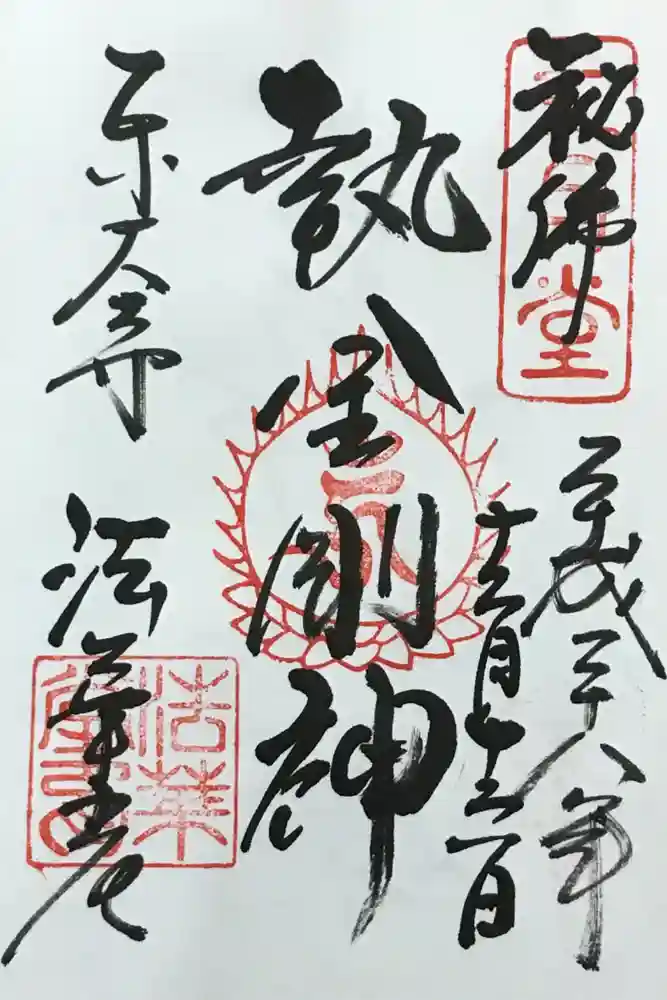 祕佛
三月堂
平成二十八年
十二月十六日
執金剛神
東大寺
法華堂
法華堂印